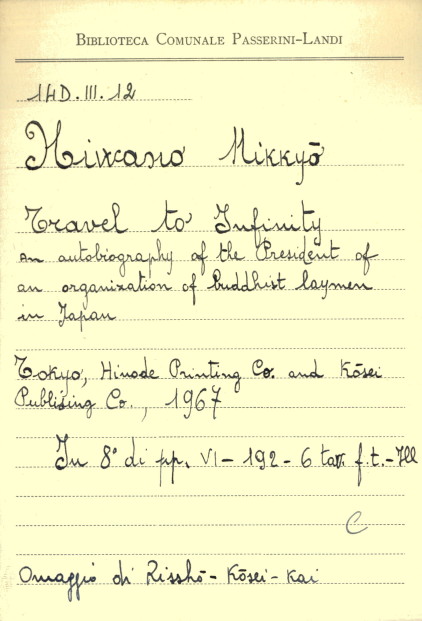 BIBLIOTECA COMUNALE PASSERINI-LANDI
14D.III.12
Niwano Nikkyō
Travel to Infinity
An autobiography of the President of
an organization of Buddhist laymen
in Japan
Tokyo, Hinode Printing Co. and Kōsei
Publising Co., 1967
In 8° di pp. VI-192-6 tav. f.t.-Ill
C
Omaggio di Risshō-Kōsei-Kai